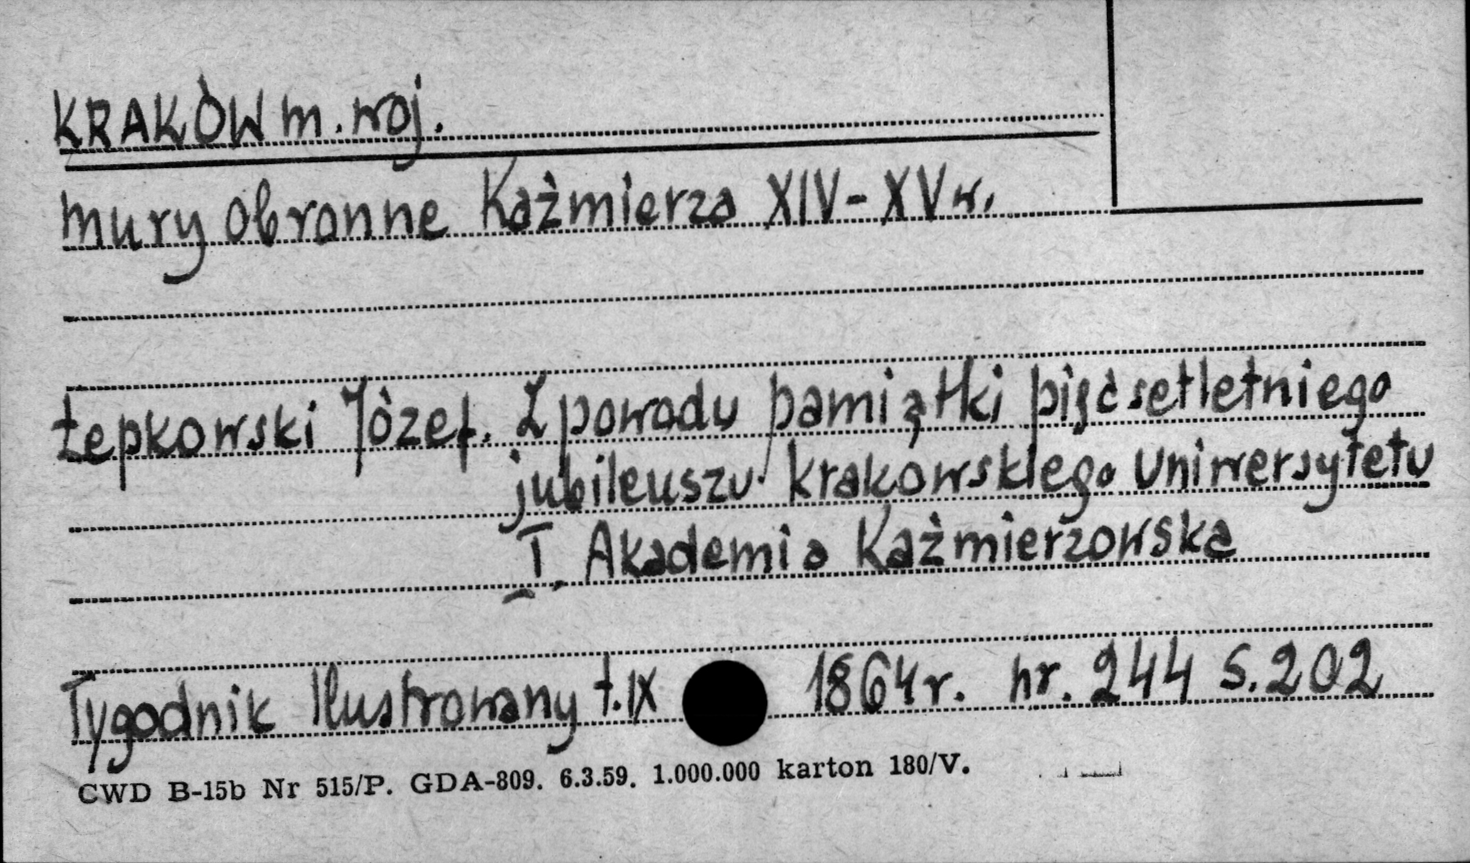 KRAKÓW m. woj.
mury obronne Kaźmierza XIV-XV w.
Łepkowski Józef. Z powodu pamiątki pięćsetletniego
jubileuszu krakowskiego Uniwersytetu
I. Akademia Kaźmierzowska
Tygodnik Ilustrowany t.IX 1864r. nr. 244 s. 202
CWD B-15b Nr 515/P. GDA-809. 6.3.59. 1.000.000 karton 180/V.